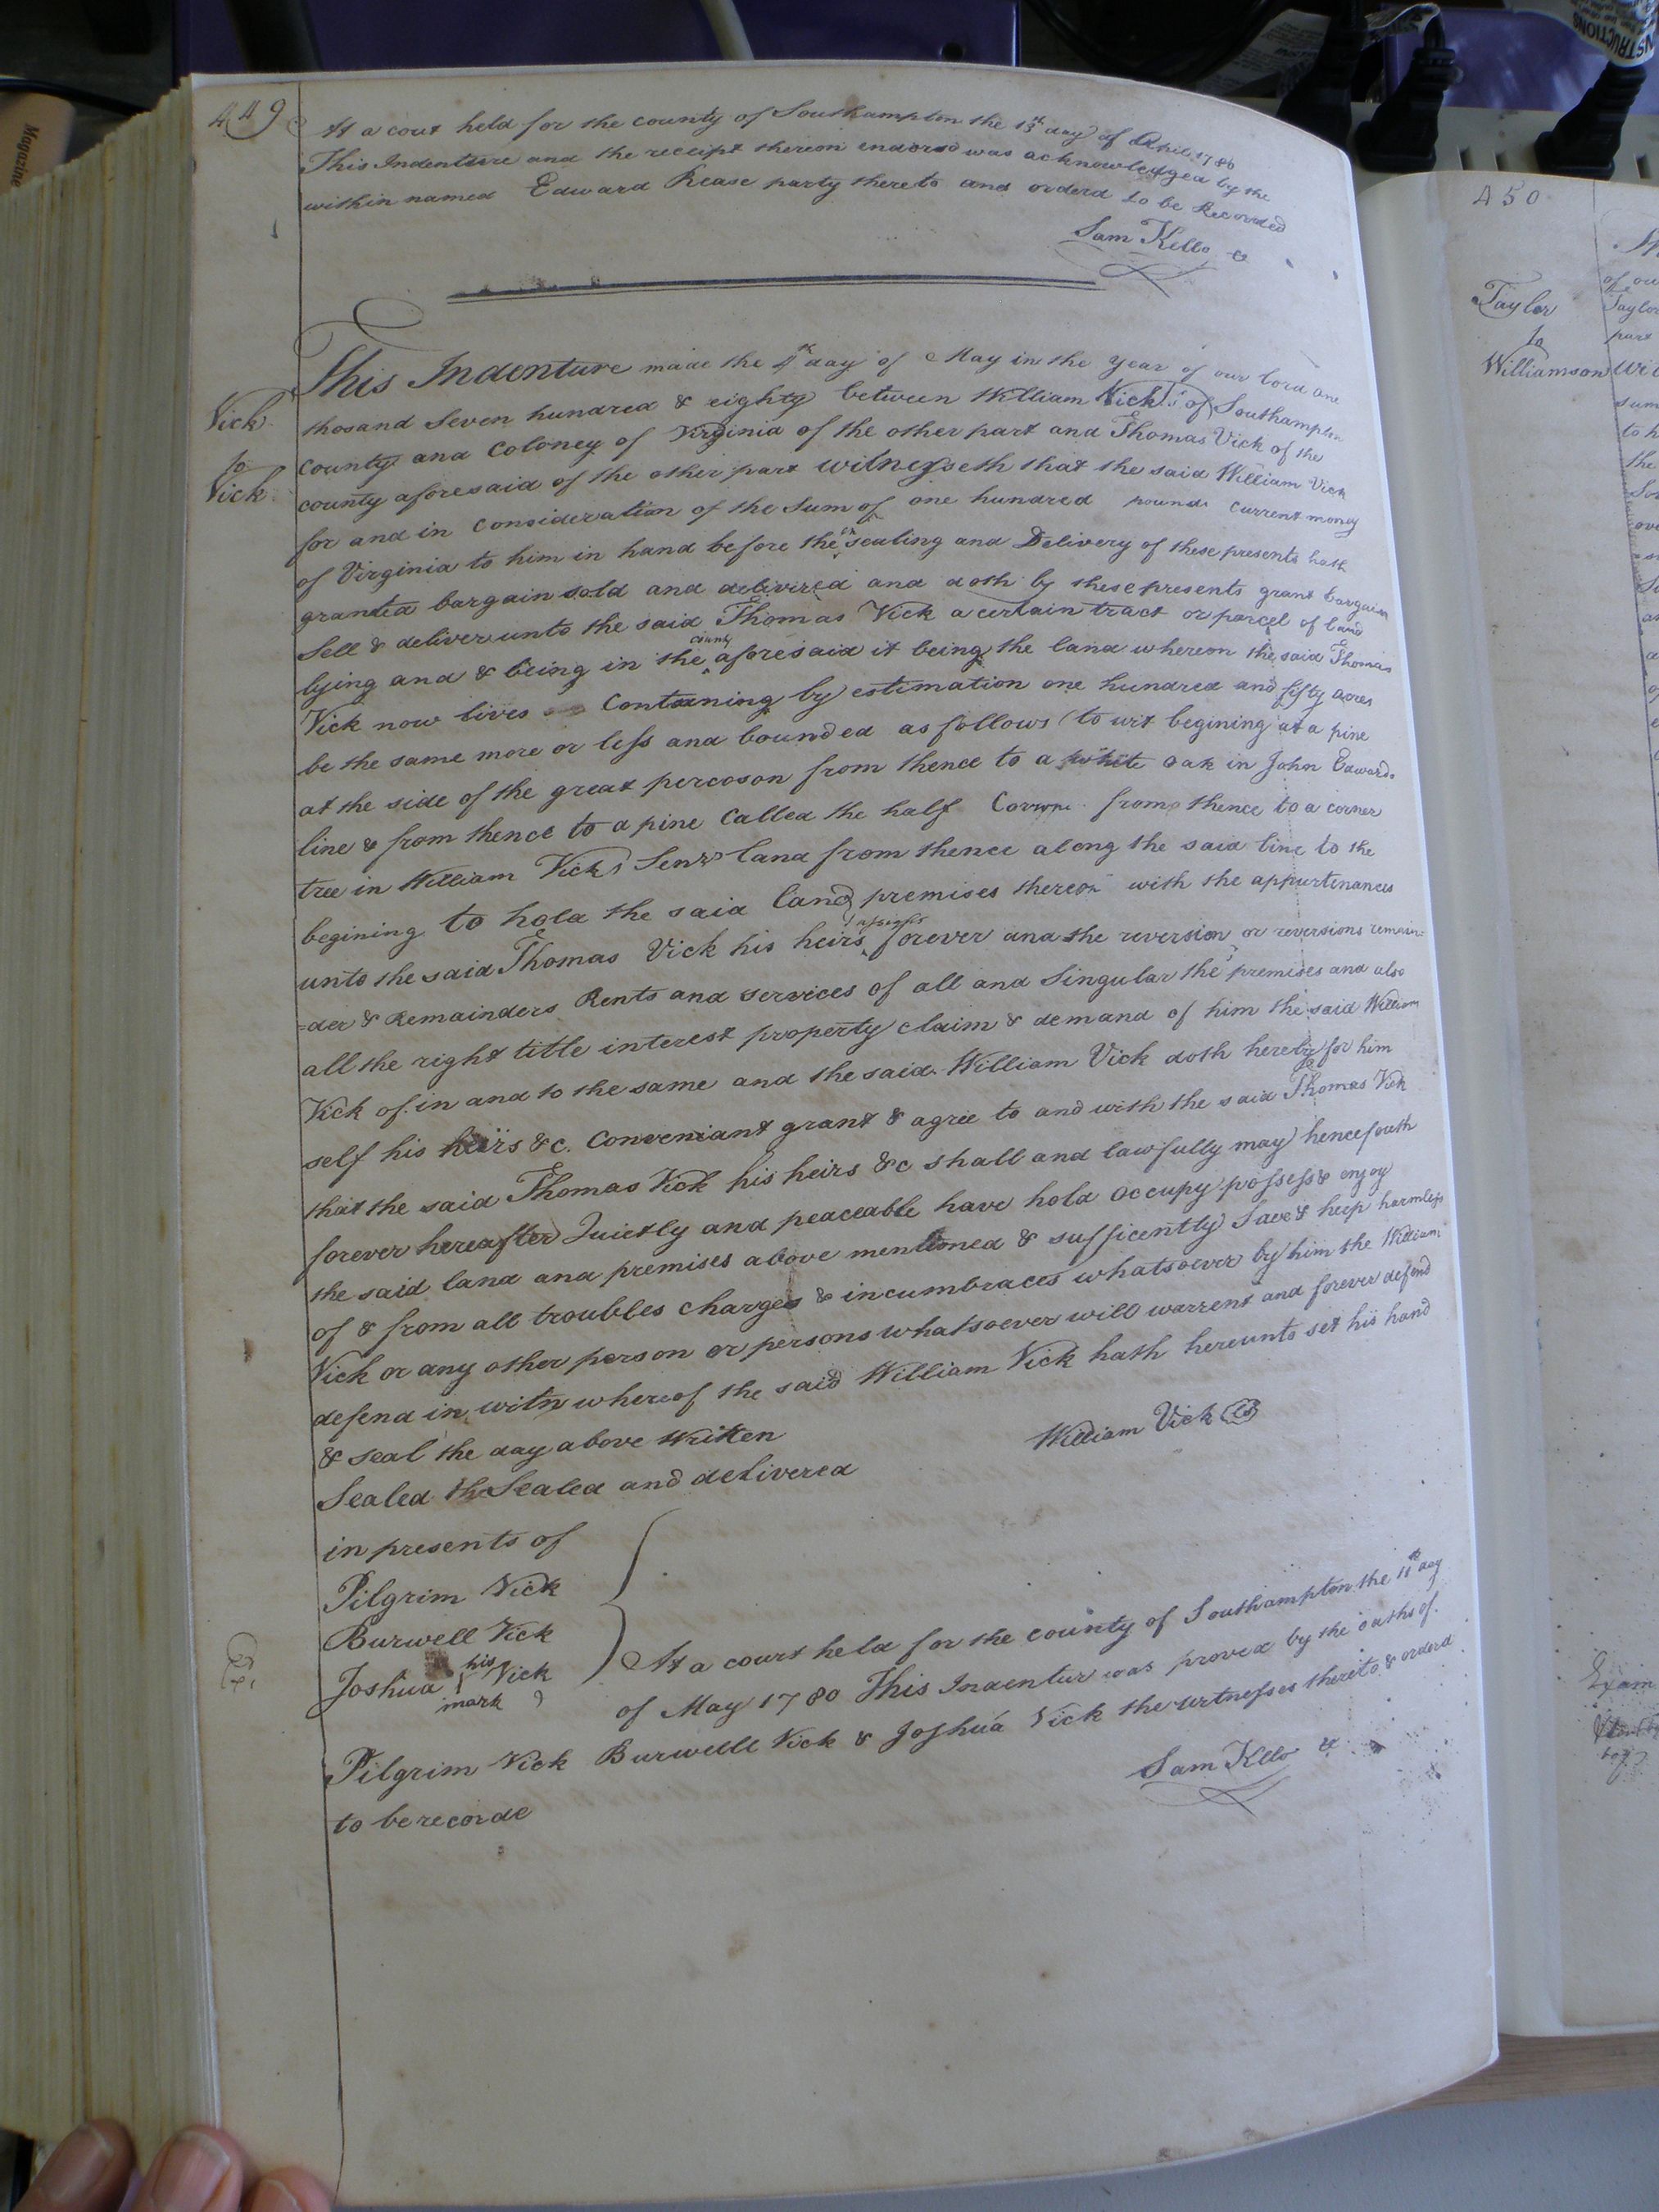 449
At a court held for the county of Southampton the 13th day of April 1780
This Indenture and the receipt thereon endorsd was acknowledged by the
within named Edward Rease party thereto and orderd to be Recorded
Sam Kello
This Indenture made the 4th day of May in the year of our lord one
Vick
to
Vick
thosand Seven hundred & eighty between William Vick of Southampton
county and Coloney of Virginia of the other part and Thomas Vick of the
county aforesaid of the other part witnesseth that the said William Vick
for and in Consideration of the Sum of one hundred pounds current money
of Virginia to him in hand before the sealing and Delivery of these presents hath
granted bargain sold and delivered and doth by these presents grant bargain
Sell & deliver unto the said Thomas Vick a certain tract or parcel of land
lying and & being in the county aforesaid it being the land whereon the said Thomas
Vick now lives Containing by estimation one hundred and fifty acres
be the same more or less and bounded as follows (to wit begining at a pine
at the side of the great percoson from thence to a white oak in John Edwards
line & from thence to a pine Called the half from thence to a corner
tree in William Vicks Senr land from thence along the said line to the
begining to hold the said land premises thereon with the appurtenances
unto the said Thomas Vick his heirs forever and the reversion or reversions remain=
=der & Remainders Rents and services of all and Singular the premises and also
all the right title interest property claim & demand of him the said William
Vick of in and to the same and the said William Vick doth hereby for him
self his heirs &c. Conveniant grant & agree to and with the said Thomas Vick
that the said Thomas Vick his heirs &c shall and lawfully may henceforth
forever hereafter Quietly and peaceable have hold occupy possess & enjoy
the said land and premises above mentioned & sufficently Save & keep harmless
of & from all troubles charges & incumbraces whatsoever by him the William
Vick or any other person or persons whatsoever will warrent and forever defend
defend in witn whereof the said William Vick hath hereunto set his hand
& seal the day above written
William Vick
Sealed the Sealed and delivered
in presents of
Pilgrim Vick
Burwell Vick
Joshua his Vick
mark
At a court held for the county of Southampton the 11th day
of May 1780 This Indentur was proved by the oaths of
Pilgrim Vick Burwell Vick & Joshua Vick the witnesses thereto & orderd
to be recorde
Sam Kllo
450
Taylor
to
Williamson
Magazine
INSTRUCTIONS